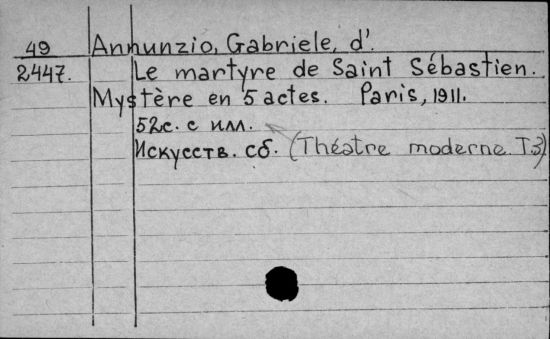 49 Annunzio, Gabriele, d'.
2447. Le martyre de Saint Sébastien.
Mystère en 5 actes. Paris, 1911.
52с. с илл.
Искусств. сб. (Théatre moderne. T.3)